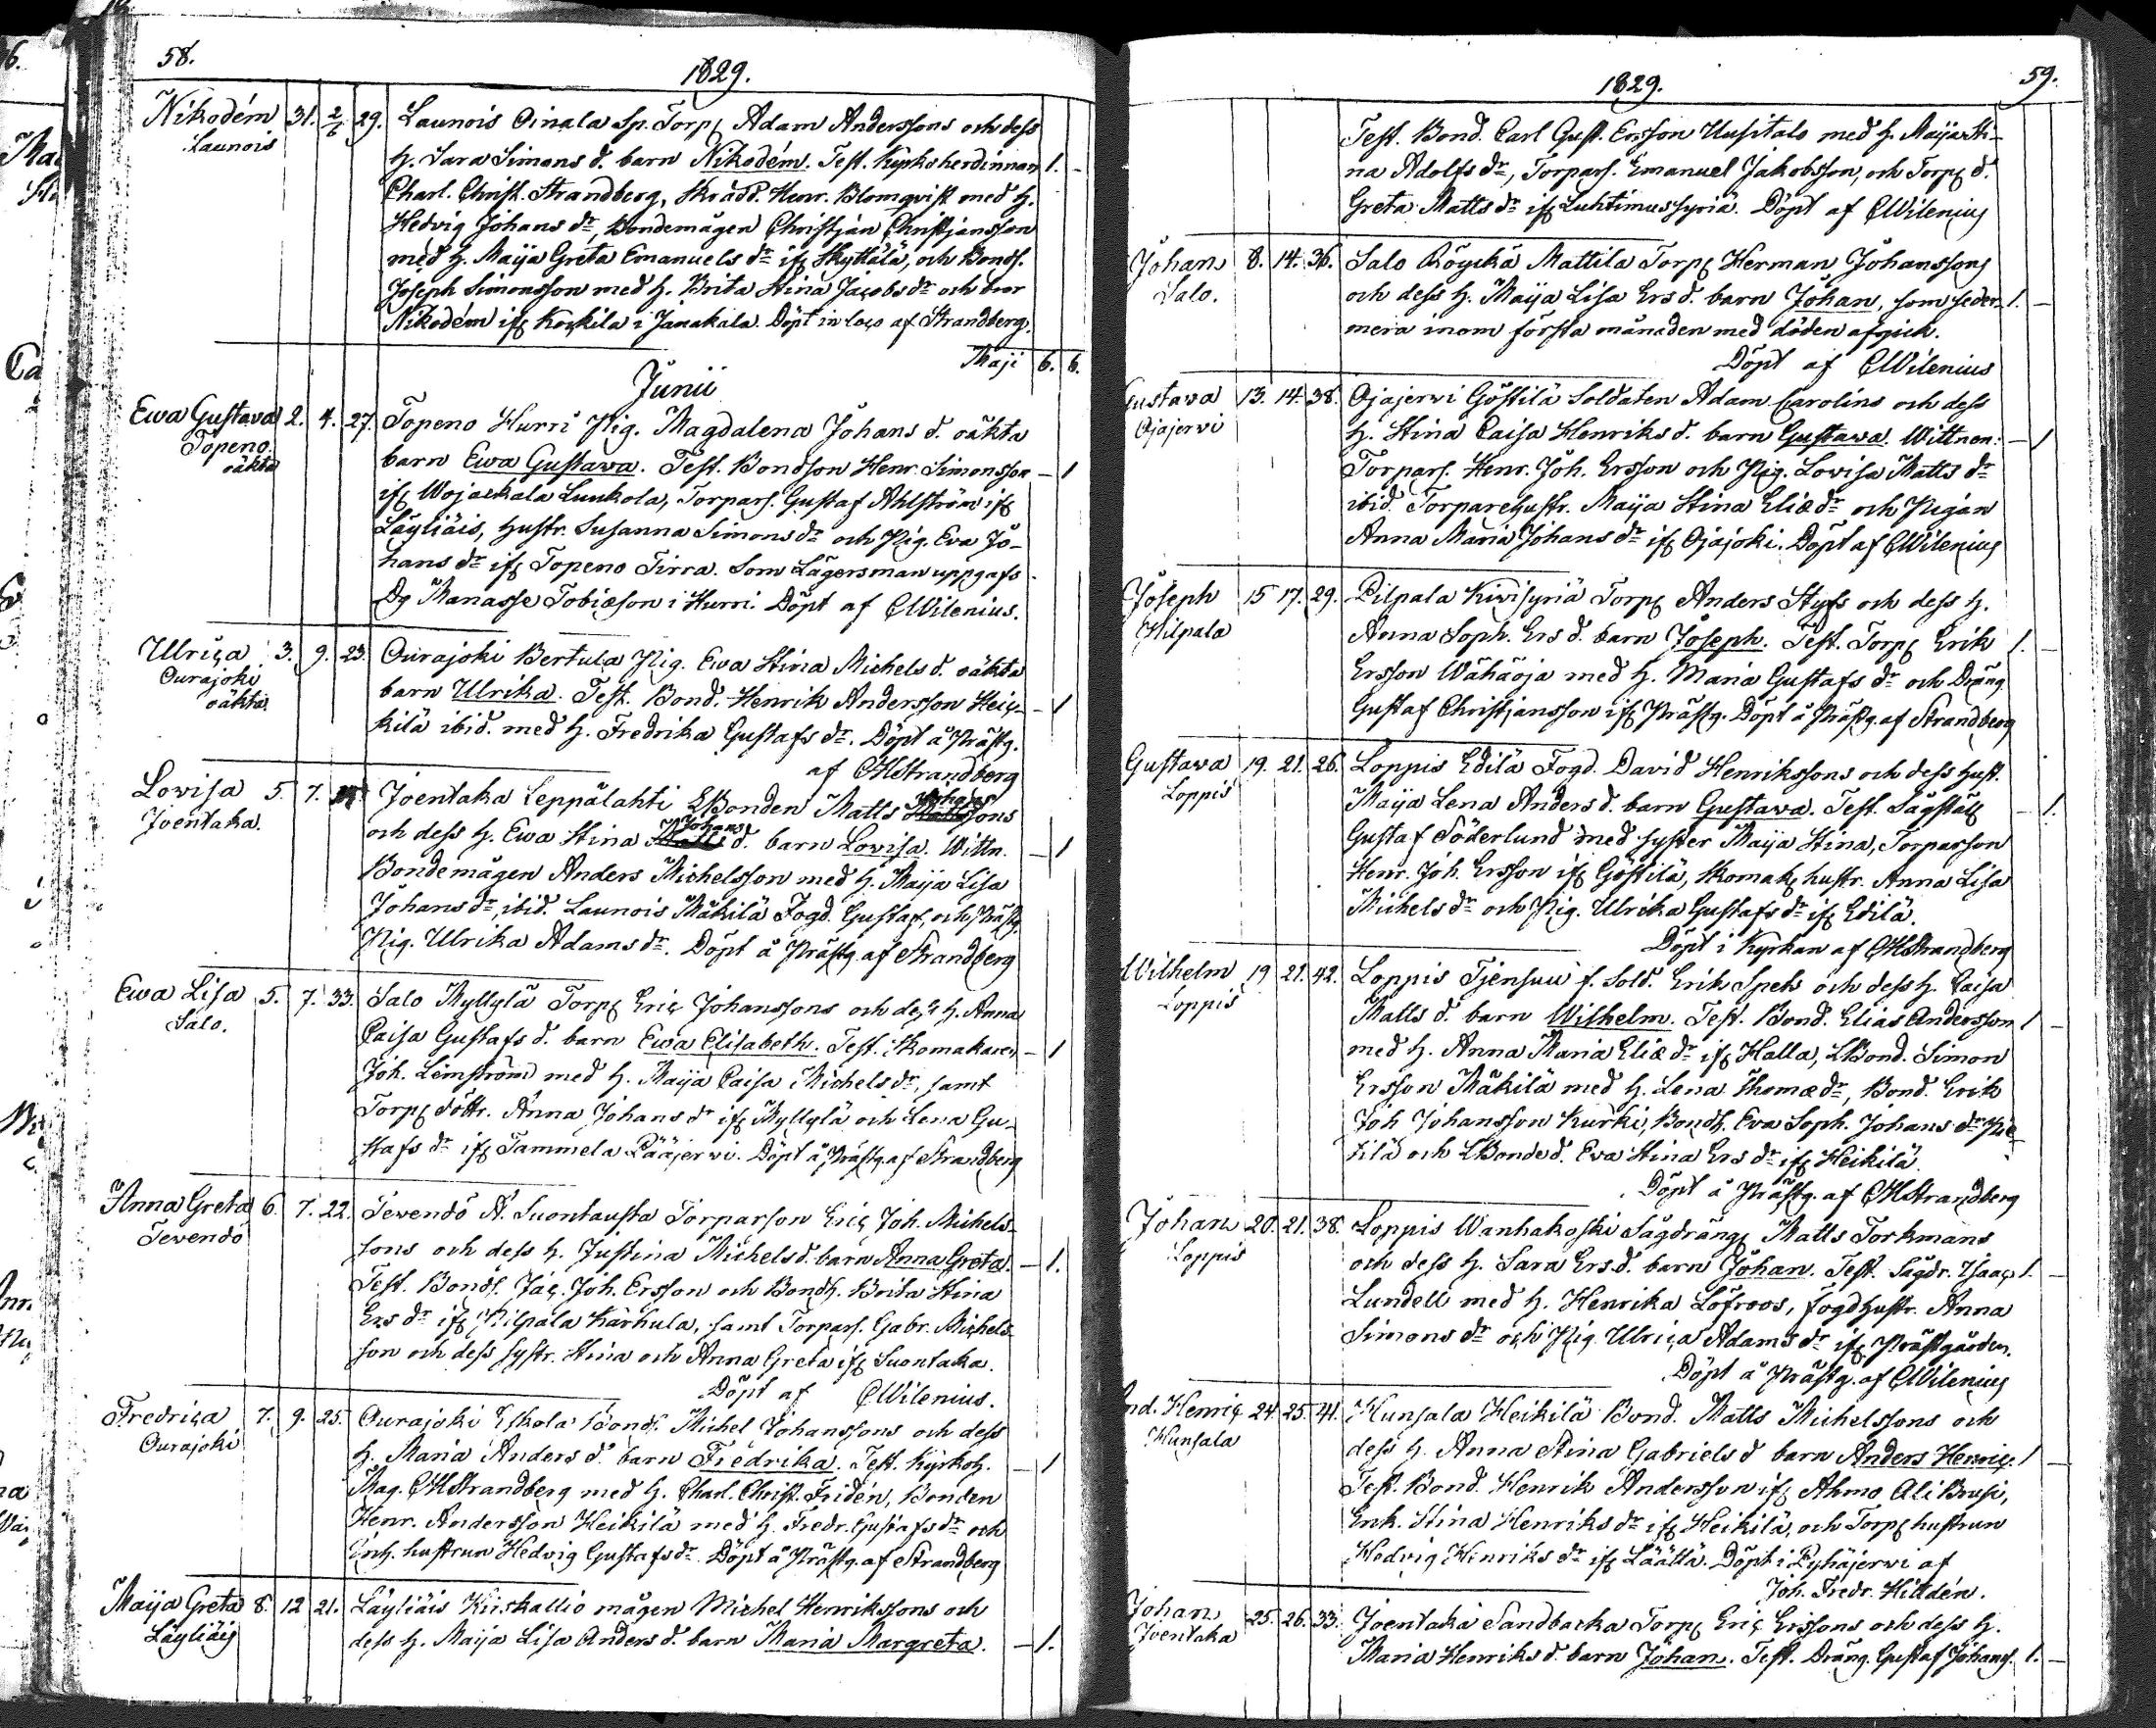 58.
1829.
Nikodém 31. 2/6 29. Launois Oinala Sp. Torp Adam Anderssons och dess
Launois
h. Sara Simons d. barn Nikodém. Test. Kyrkoherdinnan 1. –
Charl. Christ. Strandberg, Skrädd. Henr. Blomqvist med h.
Hedvig Johans dr, Bondemågen Christjan Christjansson
med h. Maija Greta Emanuels dr ifr Skyttälä, och Bonds.
Joseph Simonsson med h. Brita Stina Jacobs dr och bror
Nikodém ifr Koskila i Janakala. Döpt in loco af Strandberg.
Maji 6. 6.
Junii
Ewa Gustava 2. 4. 27. Topeno Hurri Pig. Magdalena Johans d. oäkta
Topeno.
oäkta
barn Ewa Gustawa. Test. Bondson Henr. Simonsson – 1
ifr Wojakkala Luukola, Torpars. Gustaf Ahlström ifr
Läyliäis, hustr. Susanna Simons dr och Pig. Eva Jo-
hans dr ifr Topeno Tirra. Som Lägersman uppgafs
Dg Manasse Tobiæson i Hurri. Döpt af CWilenius.
Ulrica 3. 9. 23. Ourajoki Bertula Pig. Ewa Stina Michels d. oäkta
Ourajoki
oäkta
barn Ulrika. Test. Bond. Henrik Andersson Heic- – 1
kilä ibid. med h. Fredrika Gustafs dr. Döpt å Prästg.
af CHStrandberg
Lovisa 5. 7. Joentaka Leppälahti LBonden Matts Johanssons
Joentaka.
och dess h. Ewa Stina Johans d. barn Lovisa. Wittn. – 1
Bondemågen Anders Michelsson med h. Maija Lisa
Johans dr, ibid. Launois Mäkilä Fogd. Gustaf, och Prästg.
Pig. Ulrika Adams dr. Döpt å Prästg. af Strandberg
Ewa Lisa 5. 7. 33. Salo Myllylä Torp Eric Johanssons och dess h. Anna
Salo.
Caisa Gustafs d. barn Ewa Elisabeth. Test. Skomakaren – 1
Joh. Lemström med h. Maija Caisa Michels dr, samt
Torp döttr. Anna Johans dr ifr Myllylä och Lena Gu-
stafs dr ifr Tammela Pääjerwi. Döpt å Prästg. af Strandberg
Anna Greta 6. 7. 22. Tevendö A. Suontausta Torparson Eric Joh. Michels-
Tevendö
sons och dess h. Justina Michels d. barn Anna Greta. – 1.
Test. Bonds. Jac. Joh. Ersson och Bondh. Brita Stina
Ers dr ifr Pilpala Karhula, samt Torpars. Gabr. Michels-
son och dess systr. Stina och Anna Greta ifr Suontaka.
Döpt af CWilenius.
Fredrica 7. 9. 25. Ourajoki Eskola Bonds. Michel Johanssons och dess
Ourajoki
h. Maria Anders d. barn Fredrika. Test. Kyrkoh. – 1
Mag. CHStrandberg med h. Charl. Christ. Fridén, Bonden
Henr. Andersson Heikilä med h. Fredr. Gustafs dr och
Enk. hustrun Hedvig Gustafs dr. Döpt å Prästg. af Strandberg
Maija Greta 8. 12 21. Läyliäis Kiiskallio mågen Michel Henrikssons och
Läyliäis
dess h. Maija Lisa Anders d. barn Maria Margreta. – 1.
59.
1829.
Test. Bond. Carl Gust. Ersson Uusitalo med h. Maija Sti-
na Adolfs dr, Torpars. Emanuel Jakobsson, och Torp d.
Greta Matts dr ifr Luhtimussyriä. Döpt af CWilenius
Johan 8. 14. 36. Salo Röyckä Mattila Torp Herman Johanssons
Salo.
och dess h. Maija Lisa Ers d. barn Johan, som seder- 1. –
mera inom första månaden med döden afgick.
Döpt af CWilenius
Gustava 13. 14. 38. Ojajerwi Göstilä Soldaten Adam Carolins och dess
Ojajerwi
h. Stina Caisa Henriks d. barn Gustawa. Wittnen: – 1
Torpars. Henr. Joh. Ersson och Pig. Lovisa Matts dr
ibid. Torparehustr. Maija Stina Eliæ dr och Pigan
Anna Maria Johans dr ifr Ojajoki. Döpt af CWilenius
Joseph 15 17. 29. Pilpala Kivisyriä Torp Anders Styfs och dess h.
Pilpala
Anna Soph. Ers d. barn Joseph. Test. Torp Erik 1. –
Ersson Wähäoja med h. Maria Gustafs dr och Dräng
Gustaf Christjansson ifr Prästg. Döpt å Prästg. af Strandberg
Gustawa 19. 21. 26. Loppis Edilä Fogd. David Henrikssons och dess hust.
Loppis
Maija Lena Anders d. barn Gustawa. Test. Sågställ – 1.
Gustaf Söderlund med syster Maija Stina, Torparson
Henr. Joh. Ersson ifr Göstilä, Skomak hustr. Anna Lisa
Michels dr och Pig. Ulrika Gustafs dr ifr Edilä.
Döpt i Kyrkan af CHStrandberg
Wilhelm 19 21. 42. Loppis Tjensuu f. Sold. Erik Spets och dess h. Caisa
Loppis
Matts d. barn Wilhelm. Test. Bond. Elias Andersson 1 –
med h. Anna Maria Eliæ dr ifr Halla, LBond. Simon
Ersson Mäkilä med h. Lena Thomæ dr, Bond. Erik
Joh Johansson Kurki, Bondh. Eva Soph. Johans dr Pie-
tilä och LBonded. Eva Stina Ers dr ifr Heikilä.
Döpt å Prästg. af CHStrandberg
Johan 20. 21. 38. Loppis Wanhakoski Sågdräng Matts Torkmans
Loppis
och dess h. Sara Ers d. barn Johan. Test. Sågdr. Isaac 1. –
Lundell med h. Henrika Löfroos, fogdhustr. Anna
Simons dr och Pig. Ulrica Adams dr ifr Prästgården.
Döpt å Prästg. af CWilenius
And. Henric 24. 25. 41. Hunsala Heikilä Bond. Matts Michelssons och
Hunsala
dess h. Anna Stina Gabriels d barn Anders Henric. 1 –
Test. Bond. Henrik Andersson ifr Ahmo Ali Brusi,
Enk. Stina Henriks dr ifr Heikilä, och Torp hustrun
Hedvig Henriks dr ifr Läättä. Döpt i Pyhäjerwi af
Joh. Fredr. Hildén.
Johan 25. 26. 33. Joentaka Sandbacka Torp Eric Erssons och dess h.
Joentaka
Maria Henriks d. barn Johan. Test. Dräng. Gustaf Johans. 1. –